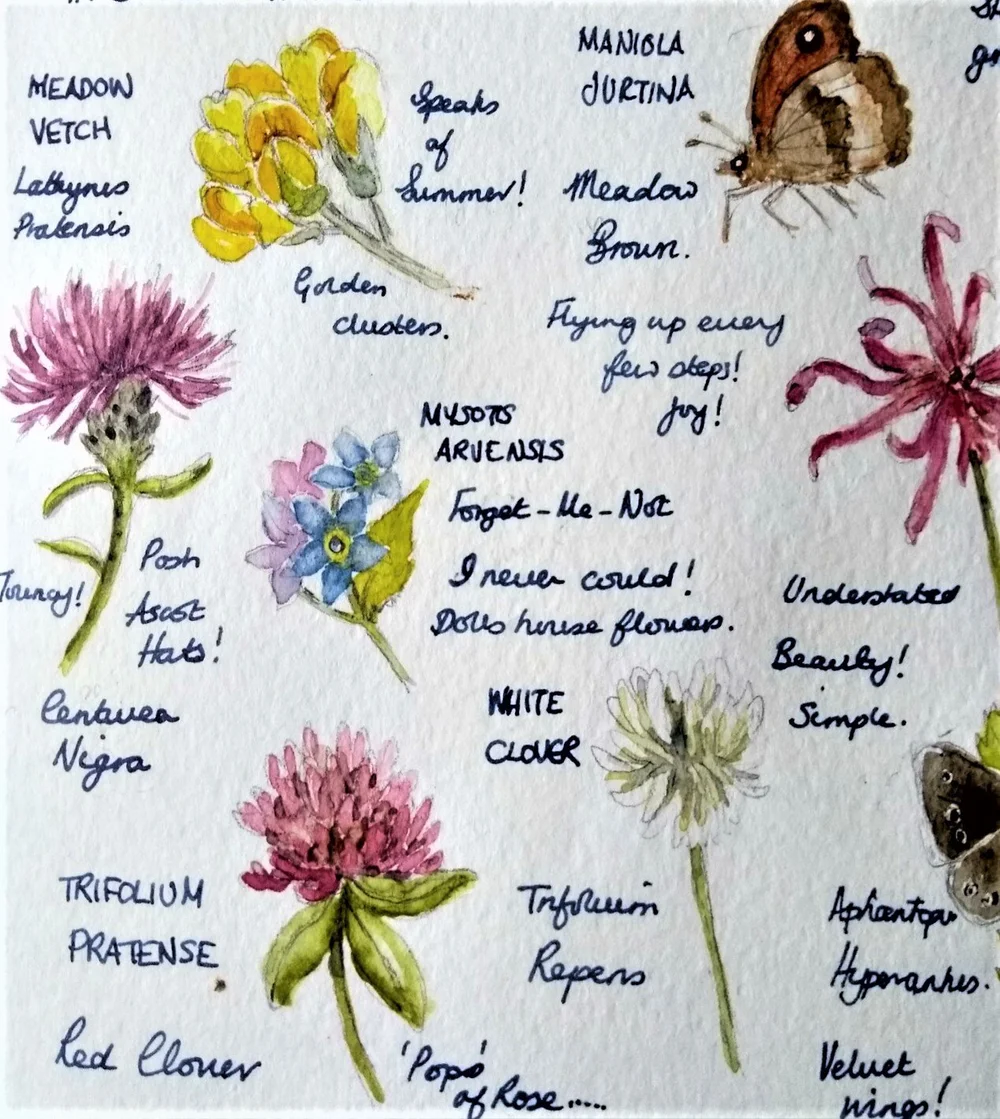 MEADOW
VETCH
Lathyrus
Pratensis
Speaks
of
Summer!
Golden
clusters.
MANIOLA
JURTINA
Meadow
Brown.
Flying up every
few steps!
Joy!
MYSOTIS
ARVENSIS
Forget-Me-Not
I never could!
Dolls house flowers.
Posh
Ascot
Hats!
Centurea
Nigra
Understated
Beauty!
Simple.
WHITE
CLOVER
Trifolium
Repens
TRIFOLIUM
PRATENSE
Red Clover
'Pops'
of Rose.....
Hyperantus.
Velvet
wings!